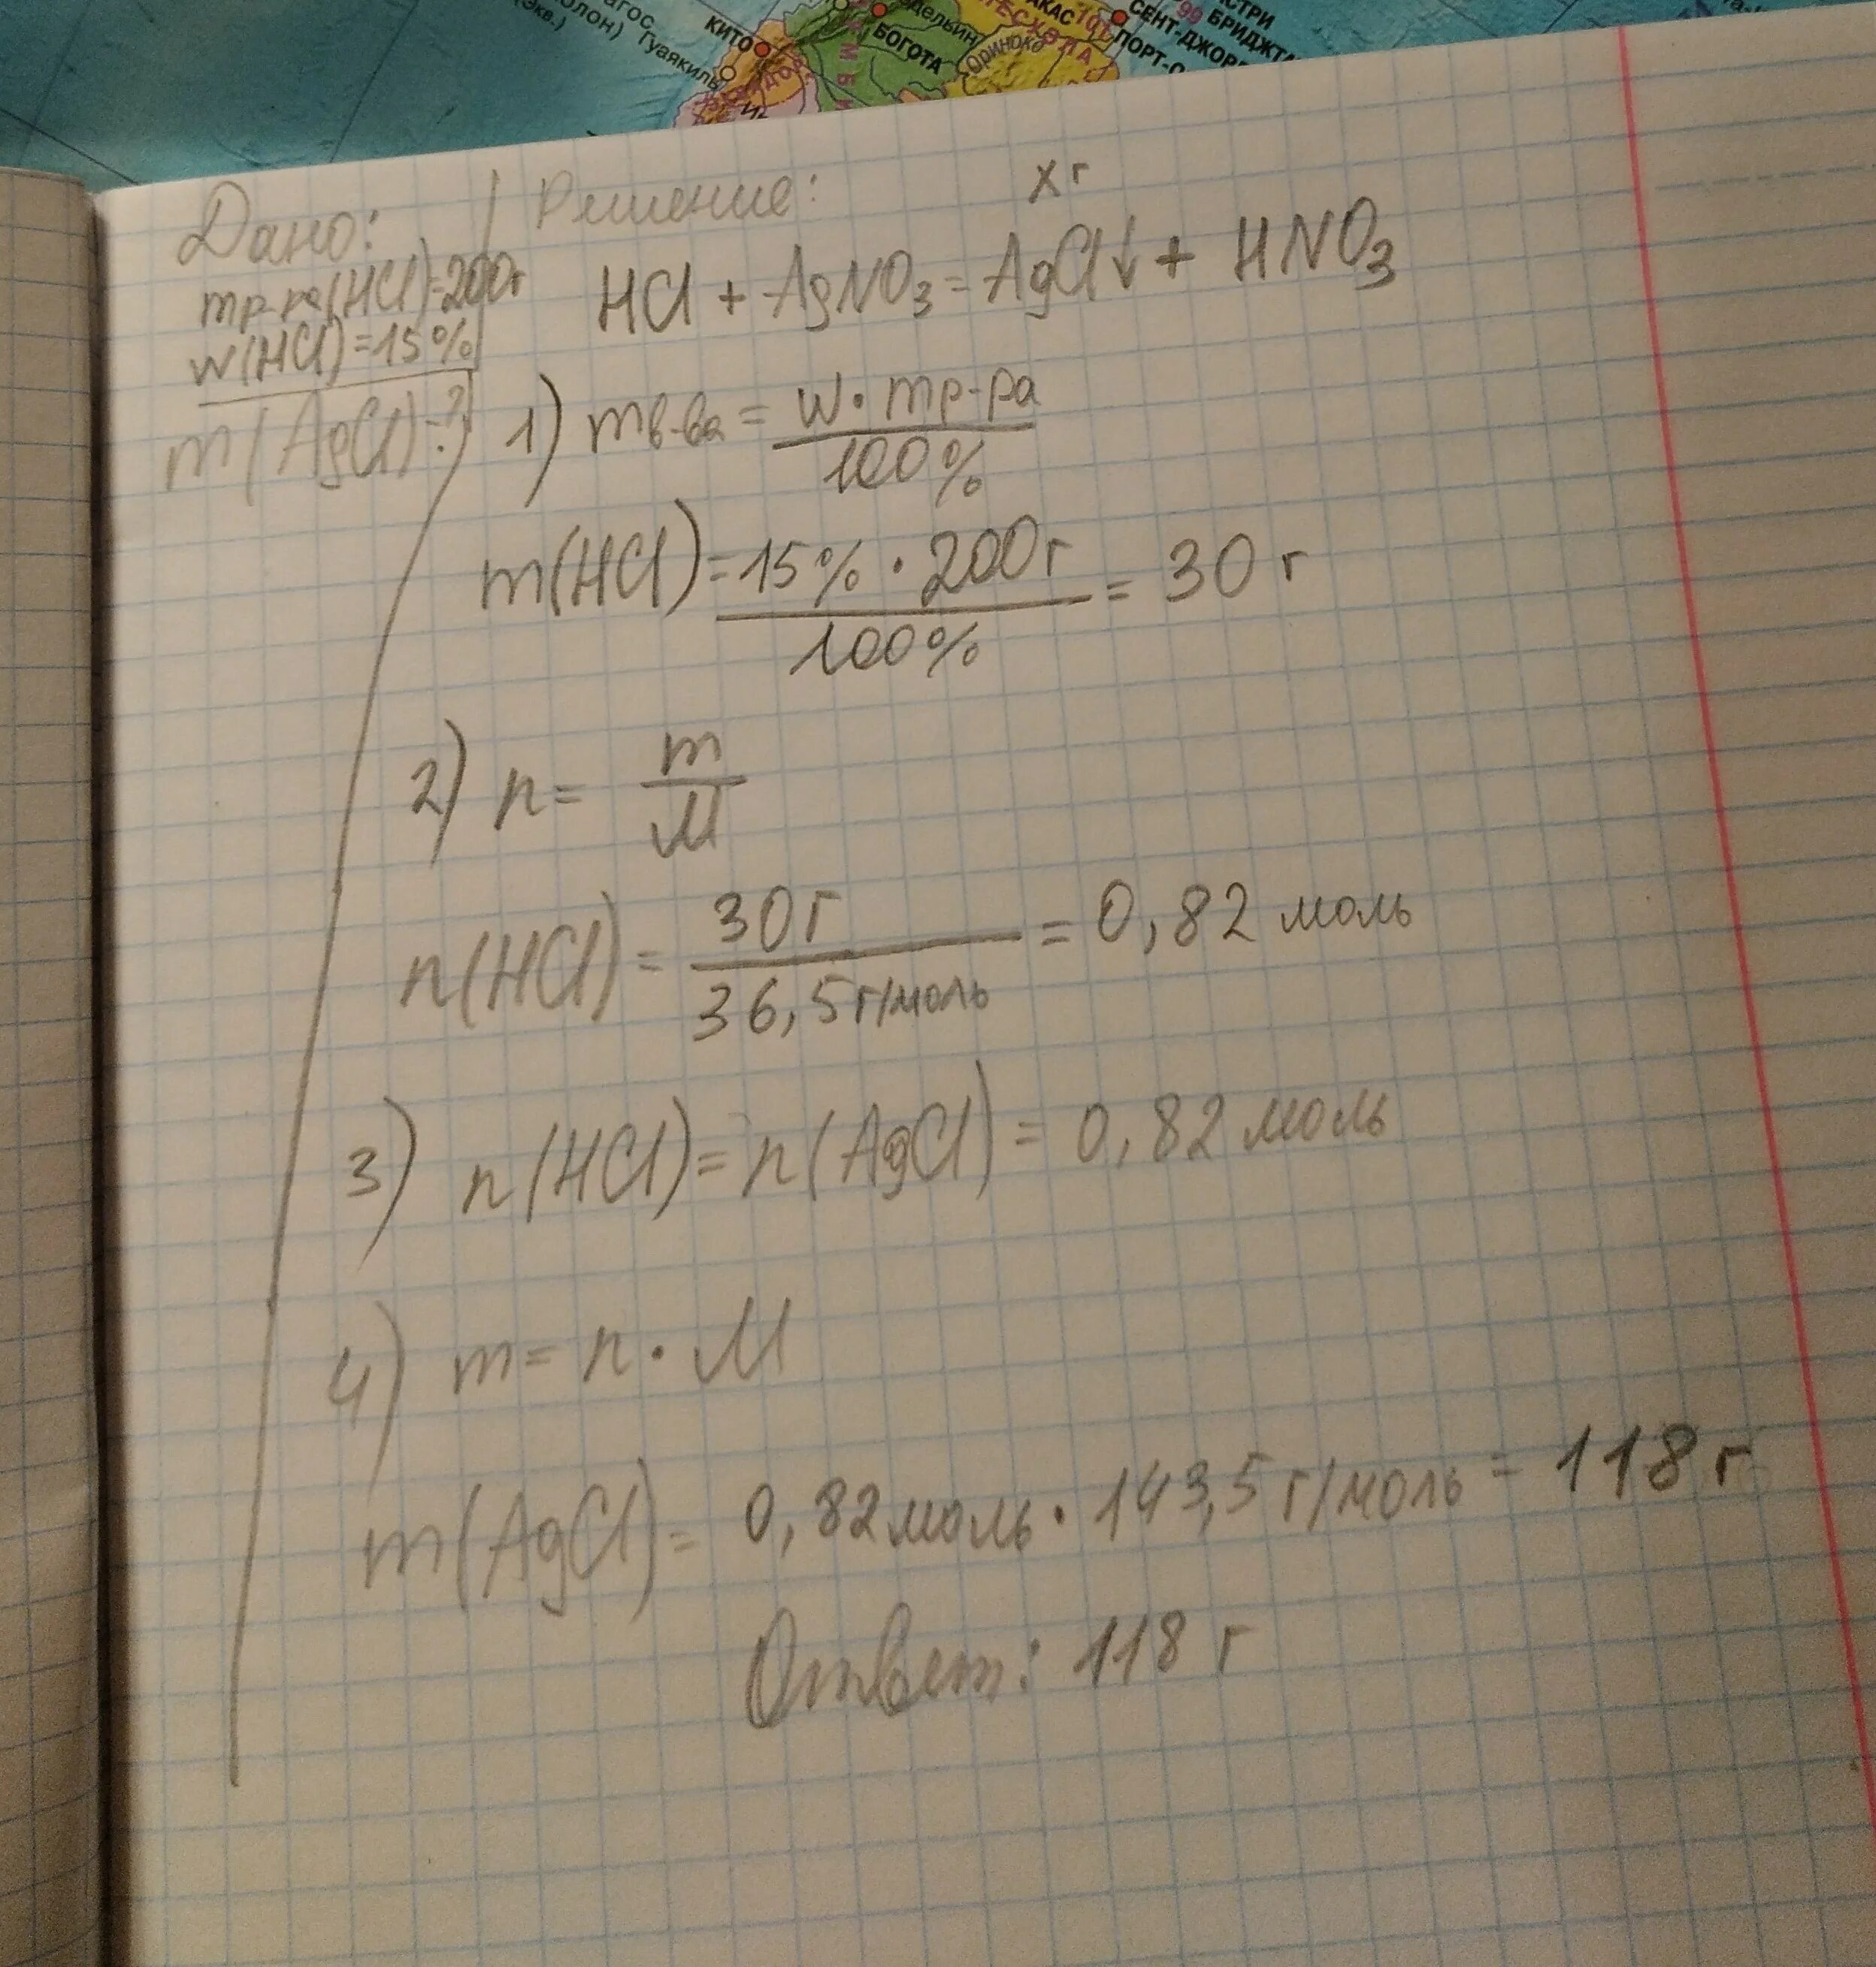 КИТО
Гуаякиль
(Экв.)
БОГОТА
Ориноко
СЕНТ-ДЖОР
БРИДЖТ
ПОРТ-
99
Дано:
mр-ра(HCl)=200г
w(HCl)=15%
m(AgCl)-?
Решение:
x г
HCl + AgNO₃ = AgCl↓ + HNO₃
1) mв-ва = w · mр-ра
100%
m(HCl) = 15% · 200г = 30 г
100%
2) n = m
M
n(HCl) = 30г = 0,82 моль
36,5г/моль
3) n(HCl) = n(AgCl) = 0,82 моль
4) m = n · M
m(AgCl) = 0,82 моль · 143,5 г/моль = 118 г
Ответ: 118 г